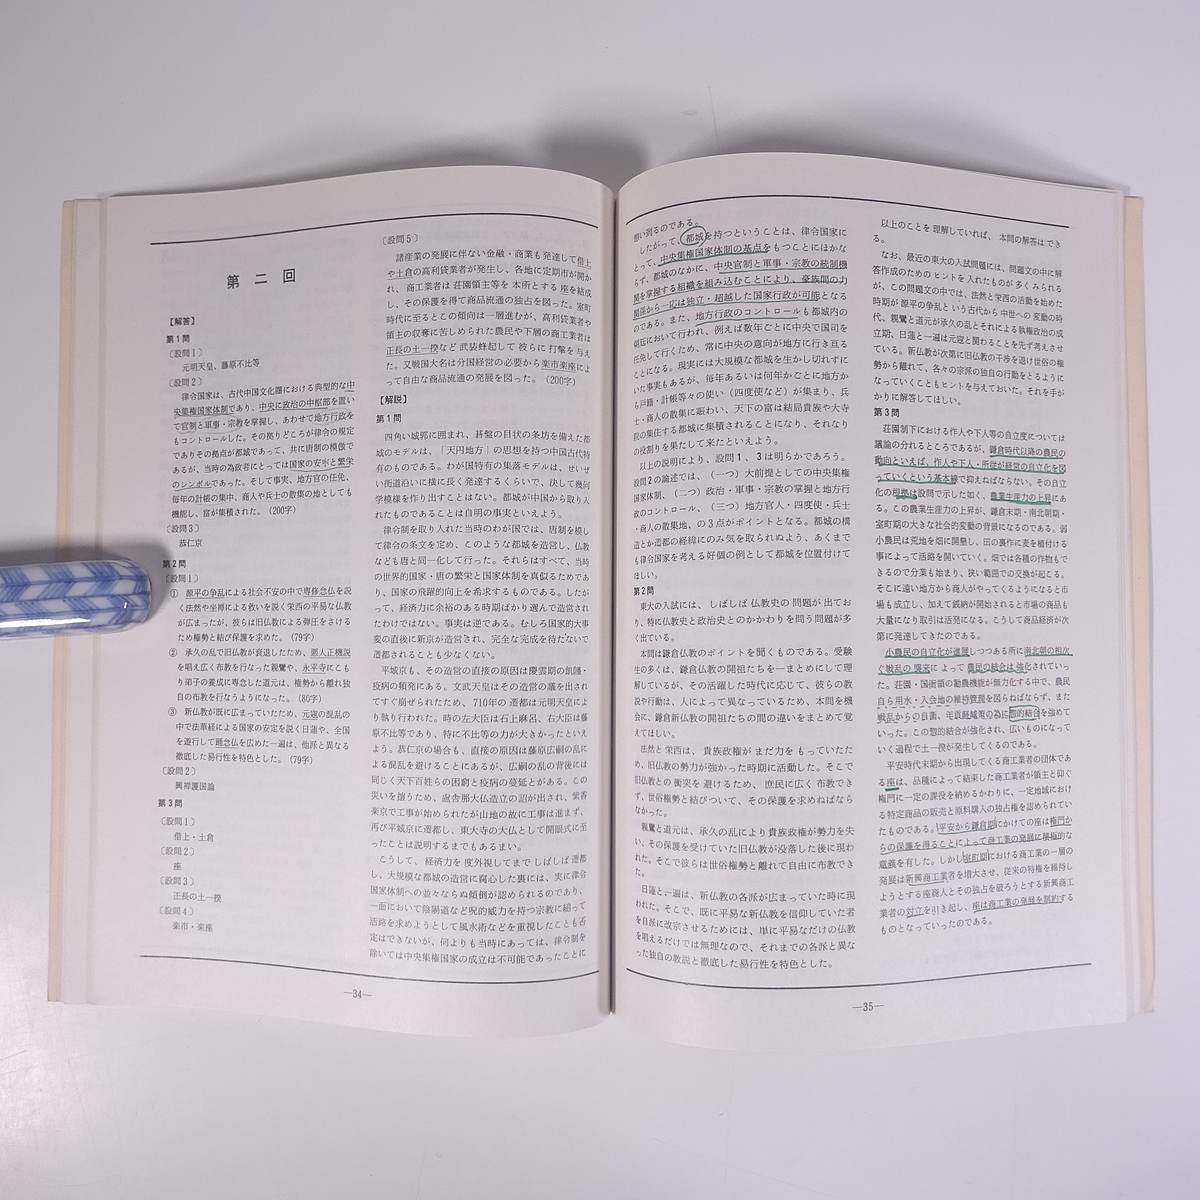 第二回
【解答】
第1問
〔設問1〕
元明天皇、藤原不比等
〔設問2〕
律令国家は、古代中国文化圏における典型的な中
央集権国家体制であり、中央に政治の中枢部を置い
て官制と軍事・宗教を掌握し、あわせて地方行政を
もコントロールした。その拠りどころが律令の規定
でありその拠点が都城であって、共に唐制の模倣で
あるが、当時の為政者にとっては国家の安寧と繁栄
のシンボルであった。そして事実、地方官の任免、
毎年の計帳の集中、商人や兵士の散集の地としても
機能し、富が集積された。(200字)
〔設問3〕
恭仁京
第2問
〔設問1〕
① 源平の争乱による社会不安の中で専修念仏を説
く法然や坐禅による救いを説く栄西の平易な仏教
が広まったが、彼らは旧仏教による弾圧をさける
ため権勢と結び保護を求めた。(79字)
② 承久の乱で旧仏教が衰退したため、悪人正機説
を唱え広く布教を行なった親鸞や、永平寺にこも
り弟子の養成に専念した道元は、権勢から離れ独
自の布教を行なうようになった。(80字)
③ 新仏教が既に広まっていたため、元寇の混乱の
中で法華経による国家の安定を説く日蓮や、全国
を遊行して踊念仏を広めた一遍は、他派と異なる
徹底した易行性を特色とした。(79字)
〔設問2〕
興禅護国論
第3問
〔設問1〕
借上・土倉
〔設問2〕
座
〔設問3〕
正長の土一揆
〔設問4〕
楽市・楽座
〔設問5〕
諸産業の発展に伴ない金融・商業も発達して借上
や土倉の高利貸業者が発生し、各地に定期市が開か
れ、商工業者は荘園領主等を本所とする座を結成
し、その保護を得て商品流通の独占を図った。室町
時代に至るとこの傾向は一層進むが、高利貸業者や
領主の収奪に苦しめられた農民や下層の商工業者は
正長の土一揆など武装蜂起して彼らに打撃を与え
た。又戦国大名は分国経営の必要から楽市楽座によ
って自由な商品流通の発展を図った。(200字)
【解説】
第1問
四角い城郭に囲まれ、碁盤の目状の条坊を備えた都
城のモデルは、「天円地方」の思想を持つ中国古代特
有のものである。わが国特有の集落モデルは、せいぜ
い街道沿いに横に長く発達するくらいで、決して幾何
学模様を作り出すことはない。都城が中国から取り入
れたものであることは自明の事実といえよう。
律令制を取り入れた当時のわが国では、唐制を模し
て律令の条文を定め、このような都城を造営し、仏教
なども唐と同一化して行った。それらはすべて、当時
の世界的国家・唐の繁栄と国家体制を真似るためであ
り、国家の飛躍的向上を希求するものである。したが
って、経済力に余裕のある時期ばかり選んで造営され
たわけではない。事実は逆である。むしろ国家的大事
変の直後に新京が造営され、完全な完成を待たないで
遷都されることも少なくない。
平城京も、その造営の直接の原因は慶雲期の飢饉・
疫病の頻発にある。文武天皇はその造営の議を出され
てすぐ崩ぜられたため、710年の遷都は元明天皇によ
り執り行われた。時の左大臣は石上麻呂、右大臣は藤
原不比等であり、特に不比等の力が大きかったといえ
よう。恭仁京の場合も、直接の原因は藤原広嗣の乱に
よる混乱を避けることにあるが、広嗣の乱の背後には
同じく天下百姓らの困窮と疫病の蔓延とがある。この
災いを攘うため、盧舎那大仏造立の詔が出され、紫香
楽京で工事が始められたが山地の故に工事は進まず、
再び平城京に遷都し、東大寺の大仏として開眼式に至
ったことは説明するまでもあるまい。
こうして、経済力を度外視してまでしばしば遷都
し、大規模な都城の造営に腐心した裏には、実に律令
国家体制への並々ならぬ傾倒が認められるのであり、
一面において陰陽道など呪的威力を持つ宗教に縋って
活路を求めようとして風水術などを重視したことも否
定はできないが、何よりも当時にあっては、律令制を
除いては中央集権国家の成立は不可能であったことに
—34—
想い到るのである。
したがって、都城を持つということは、律令国家に
とって、中央集権国家体制の基点をもつことにほかな
らず、都城のなかに、中央官制と軍事・宗教の統制機
関を掌握する組織を組み込むことにより、豪族間の力
関係から一応は独立・超越した国家行政が可能となる
のである。また、地方行政のコントロールも都城内の
朝廷において行われ、例えば数年ごとに中央で国司を
任免して行くため、常に中央の意向が地方に行き亘る
ことになる。現実には大規模な都城を生かし切れずに
いた事実もあるが、毎年あるいは何年かごとに地方か
ら戸籍・計帳等々の使い（四度使など）が集まり、兵
士・商人の散集に賑わい、天下の富は結局貴族や大寺
院の集住する都城に集積されることになり、それなり
の役割りを果たして来たといえよう。
以上の説明により、設問1、3は明らかであろう。
設問2の論述では、（一つ）大前提としての中央集権
国家体制、（二つ）政治・軍事・宗教の掌握と地方行
政のコントロール、（三つ）地方官人・四度使・兵士
・商人の散集地、の3点がポイントとなる。都城の構
造とか遷都の経緯にのみ気を取られぬよう、あくまで
律令国家を考える好個の例として都城を位置付けて
ほしい。
第2問
東大の入試には、しばしば仏教史の問題が出てお
り、特に仏教史と政治史とのかかわりを問う問題が多
く出ている。
本問は鎌倉仏教のポイントを聞くものである。受験
生の多くは、鎌倉仏教の開祖たちを一まとめにして理
解しているが、その活躍した時代に応じて、彼らの教
説や行動は、人によって異なっているため、本問を機
会に、鎌倉新仏教の開祖たちの間の違いをまとめて覚
えてほしい。
法然と栄西は、貴族政権がまだ力をもっていたた
め、旧仏教の勢力が強かった時期に活動した。そこで
旧仏教との衝突を避けるため、庶民に広く布教でき
ず、世俗権勢と結びついて、その保護を求めねばなら
なかった。
親鸞と道元は、承久の乱により貴族政権が勢力を失
い、その保護を受けていた旧仏教が没落した後に現わ
れた。そこで彼らは世俗権勢と離れて自由に布教でき
た。
日蓮と一遍は、新仏教の各派が広まっていた時に現
われた。そこで、既に平易な新仏教を信仰していた者
を自派に改宗させるためには、単に平易なだけの仏教
を唱えるだけでは無理なので、それまでの各派と異な
った独自の教説と徹底した易行性を特色とした。
以上のことを理解していれば、本問の解答はでき
る。
なお、最近の東大の入試問題には、問題文の中に解
答作成のためのヒントを入れたものが多くみられる
が、この問題文の中では、法然と栄西の活動を始めた
時期が源平の争乱という古代から中世への変動の時
代、親鸞と道元が承久の乱とそれによる執権政治の成
立期、日蓮と一遍は元寇と関わることを先ず考えさせ
ている。新仏教が次第に旧仏教の干渉を退け世俗の権
勢から離れて、各々の宗派の独自の行動をとるように
なっていくこともヒントを与えておいた。それを手が
かりに解答してほしい。
第3問
荘園制下における作人や下人等の自立度については
議論の分れるところであるが、鎌倉時代以降の農民の
動向といえば、作人や下人・所従が経営の自立化を図
っていくという基本線で抑えねばならない。その自立
化の根拠は設問で示した如く、農業生産力の上昇にあ
る。この農業生産力の上昇が、鎌倉末期・南北朝期・
室町期の大きな社会的変動の背景になるのである。弱
小農民は荒地を畑に開墾し、田の裏作に麦を植付ける
事によって活路を開いていく。畑では各種の作物もで
きるので分業も始まり、狭い範囲での交換が起こる。
そこに遠い地方から商人がやってくるようになると市
場も成立し、加えて銭納が開始されると市場の商品も
大量になり取引は活発になる。こうして商品経済が次
第に発達してきたのである。
小農民の自立化が進展しつつある所に南北朝の相次
ぐ戦乱の襲来によって農民の結合は強化されていっ
た。荘園・国衙領の勧農機能が無力化する中で、農民
自ら用水・入会地の維持管理を図らねばならず、また
戦乱からの自衛、年貢軽減策の為に惣的結合を強めて
いった。この惣的結合が強化され、広いものになって
いく過程で土一揆が発生してくるのである。
平安時代末期から出現してくる商工業者の団体であ
る座は、品種によって結束した商工業者が領主と仰ぐ
権門に一定の課役を納めるかわりに、一定地域におけ
る特定商品の販売と原料購入の独占権を認められてい
たものである。平安から鎌倉期にかけての座は権門か
らの保護を得ることによって商工業の発展に積極的な
意義を有した。しかし室町期における商工業の一層の
発展は新興商工業者を増大させ、従来の特権を維持し
ようとする座商人とその独占を破ろうとする新興商工
業者の対立を引き起し、座は商工業の発展を制約する
ものとなっていったのである。
—35—